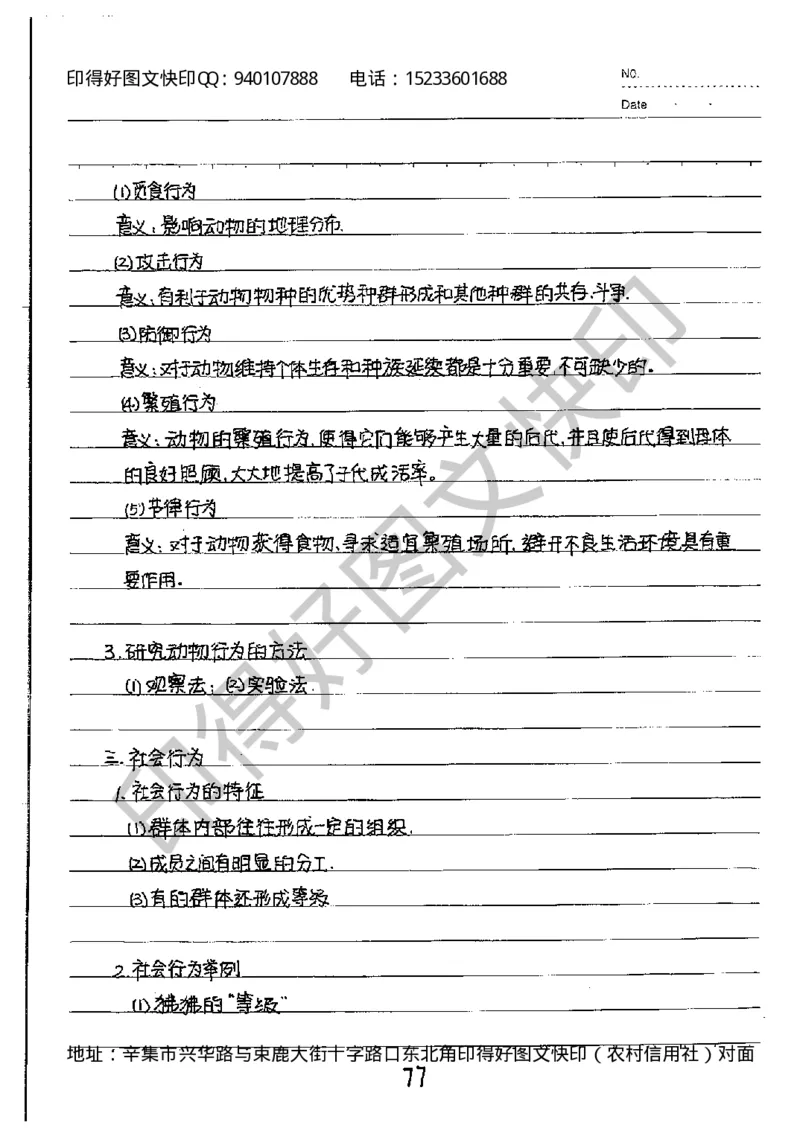 印得好图文快印QQ：940107888 电话：15233601688
NO.
Date
(1)觅食行为
意义：影响动物的地理分布.
(2)攻击行为
意义：有利于动物物种的优势种群形成和其他种群的共存.斗争.
(3)防御行为
意义：对于动物维持个体生存和种族延续都是十分重要.不可缺少的。
(4)繁殖行为
意义：动物的繁殖行为,使得它们能够产生大量的后代,并且使后代得到母体
的良好照顾,大大地提高了子代成活率。
(5)节律行为
意义：对于动物获得食物,寻求适宜繁殖场所,避开不良生活环境具有重
要作用.
3.研究动物行为的方法
(1)观察法；(2)实验法.
三.社会行为
1.社会行为的特征
(1)群体内部往往形成一定的组织.
(2)成员之间有明显的分工.
(3)有的群体还形成等级
2.社会行为举例
(1)狒狒的“等级”
地址：辛集市兴华路与束鹿大街十字路口东北角印得好图文快印（农村信用社）对面
77
印得好图文快印